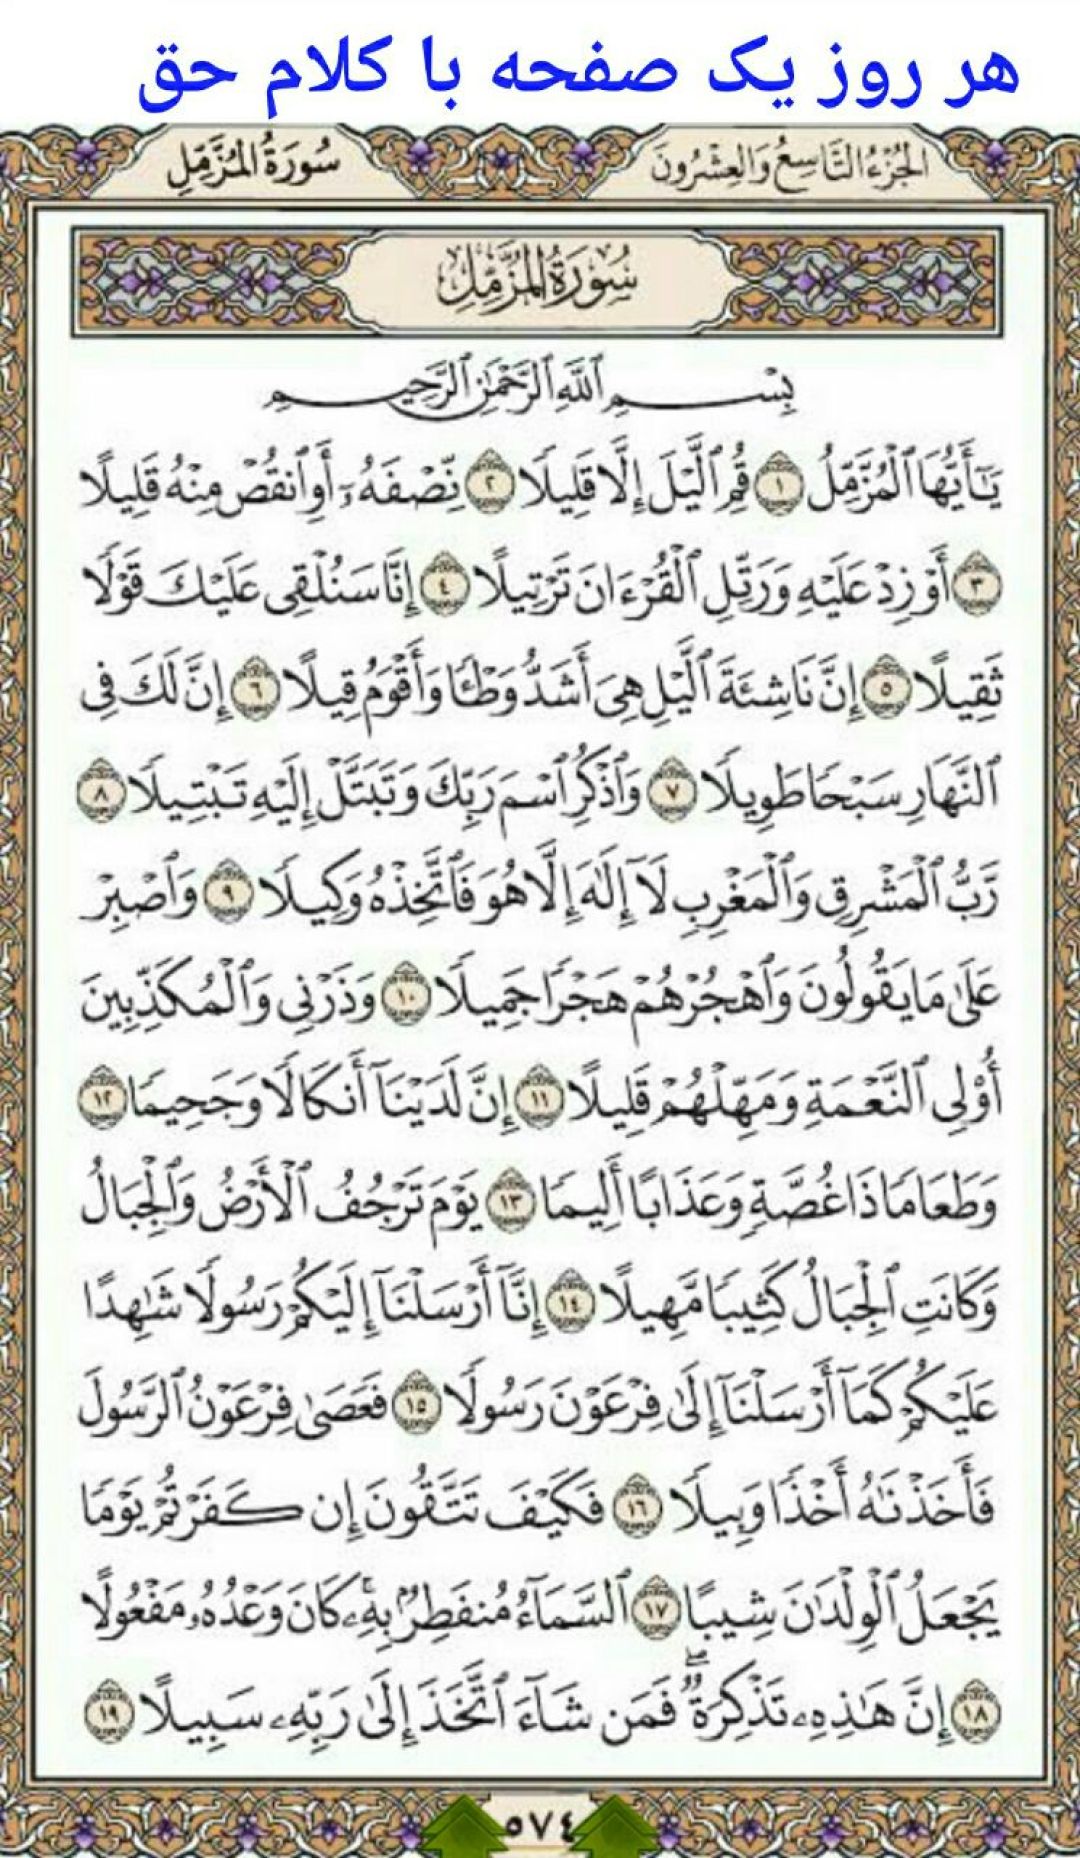 هر روز یک صفحه با کلام حق
الجُزْءُ التَّاسِعُ وَالعِشْرُونَ
سُورَةُ المُزَّمِّلِ
سُورَةُ المُزَّمِّلِ
بِسْمِ ٱللَّهِ ٱلرَّحْمَٰنِ ٱلرَّحِيمِ
يَٰٓأَيُّهَا ٱلْمُزَّمِّلُ ١ قُمِ ٱلَّيْلَ إِلَّا قَلِيلًا ٢ نِّصْفَهُۥٓ أَوِ ٱنقُصْ مِنْهُ قَلِيلًا
٣ أَوْ زِدْ عَلَيْهِ وَرَتِّلِ ٱلْقُرْءَانَ تَرْتِيلًا ٤ إِنَّا سَنُلْقِى عَلَيْكَ قَوْلًا
ثَقِيلًا ٥ إِنَّ نَاشِئَةَ ٱلَّيْلِ هِىَ أَشَدُّ وَطْـًٔا وَأَقْوَمُ قِيلًا ٦ إِنَّ لَكَ فِى
ٱلنَّهَارِ سَبْحًا طَوِيلًا ٧ وَٱذْكُرِ ٱسْمَ رَبِّكَ وَتَبَتَّلْ إِلَيْهِ تَبْتِيلًا ٨
رَّبُّ ٱلْمَشْرِقِ وَٱلْمَغْرِبِ لَآ إِلَٰهَ إِلَّا هُوَ فَٱتَّخِذْهُ وَكِيلًا ٩ وَٱصْبِرْ
عَلَىٰ مَا يَقُولُونَ وَٱهْجُرْهُمْ هَجْرًا جَمِيلًا ١٠ وَذَرْنِى وَٱلْمُكَذِّبِينَ
أُو۟لِى ٱلنَّعْمَةِ وَمَهِّلْهُمْ قَلِيلًا ١١ إِنَّ لَدَيْنَآ أَنكَالًا وَجَحِيمًا ١٢
وَطَعَامًا ذَا غُصَّةٍ وَعَذَابًا أَلِيمًا ١٣ يَوْمَ تَرْجُفُ ٱلْأَرْضُ وَٱلْجِبَالُ
وَكَانَتِ ٱلْجِبَالُ كَثِيبًا مَّهِيلًا ١٤ إِنَّآ أَرْسَلْنَآ إِلَيْكُمْ رَسُولًا شَٰهِدًا
عَلَيْكُمْ كَمَآ أَرْسَلْنَآ إِلَىٰ فِرْعَوْنَ رَسُولًا ١٥ فَعَصَىٰ فِرْعَوْنُ ٱلرَّسُولَ
فَأَخَذْنَٰهُ أَخْذًا وَبِيلًا ١٦ فَكَيْفَ تَتَّقُونَ إِن كَفَرْتُمْ يَوْمًا
يَجْعَلُ ٱلْوِلْدَٰنَ شِيبًا ١٧ ٱلسَّمَآءُ مُنفَطِرٌۢ بِهِۦ ۚ كَانَ وَعْدُهُۥ مَفْعُولًا
١٨ إِنَّ هَٰذِهِۦ تَذْكِرَةٌ ۖ فَمَن شَآءَ ٱتَّخَذَ إِلَىٰ رَبِّهِۦ سَبِيلًا ١٩
٥٧٤